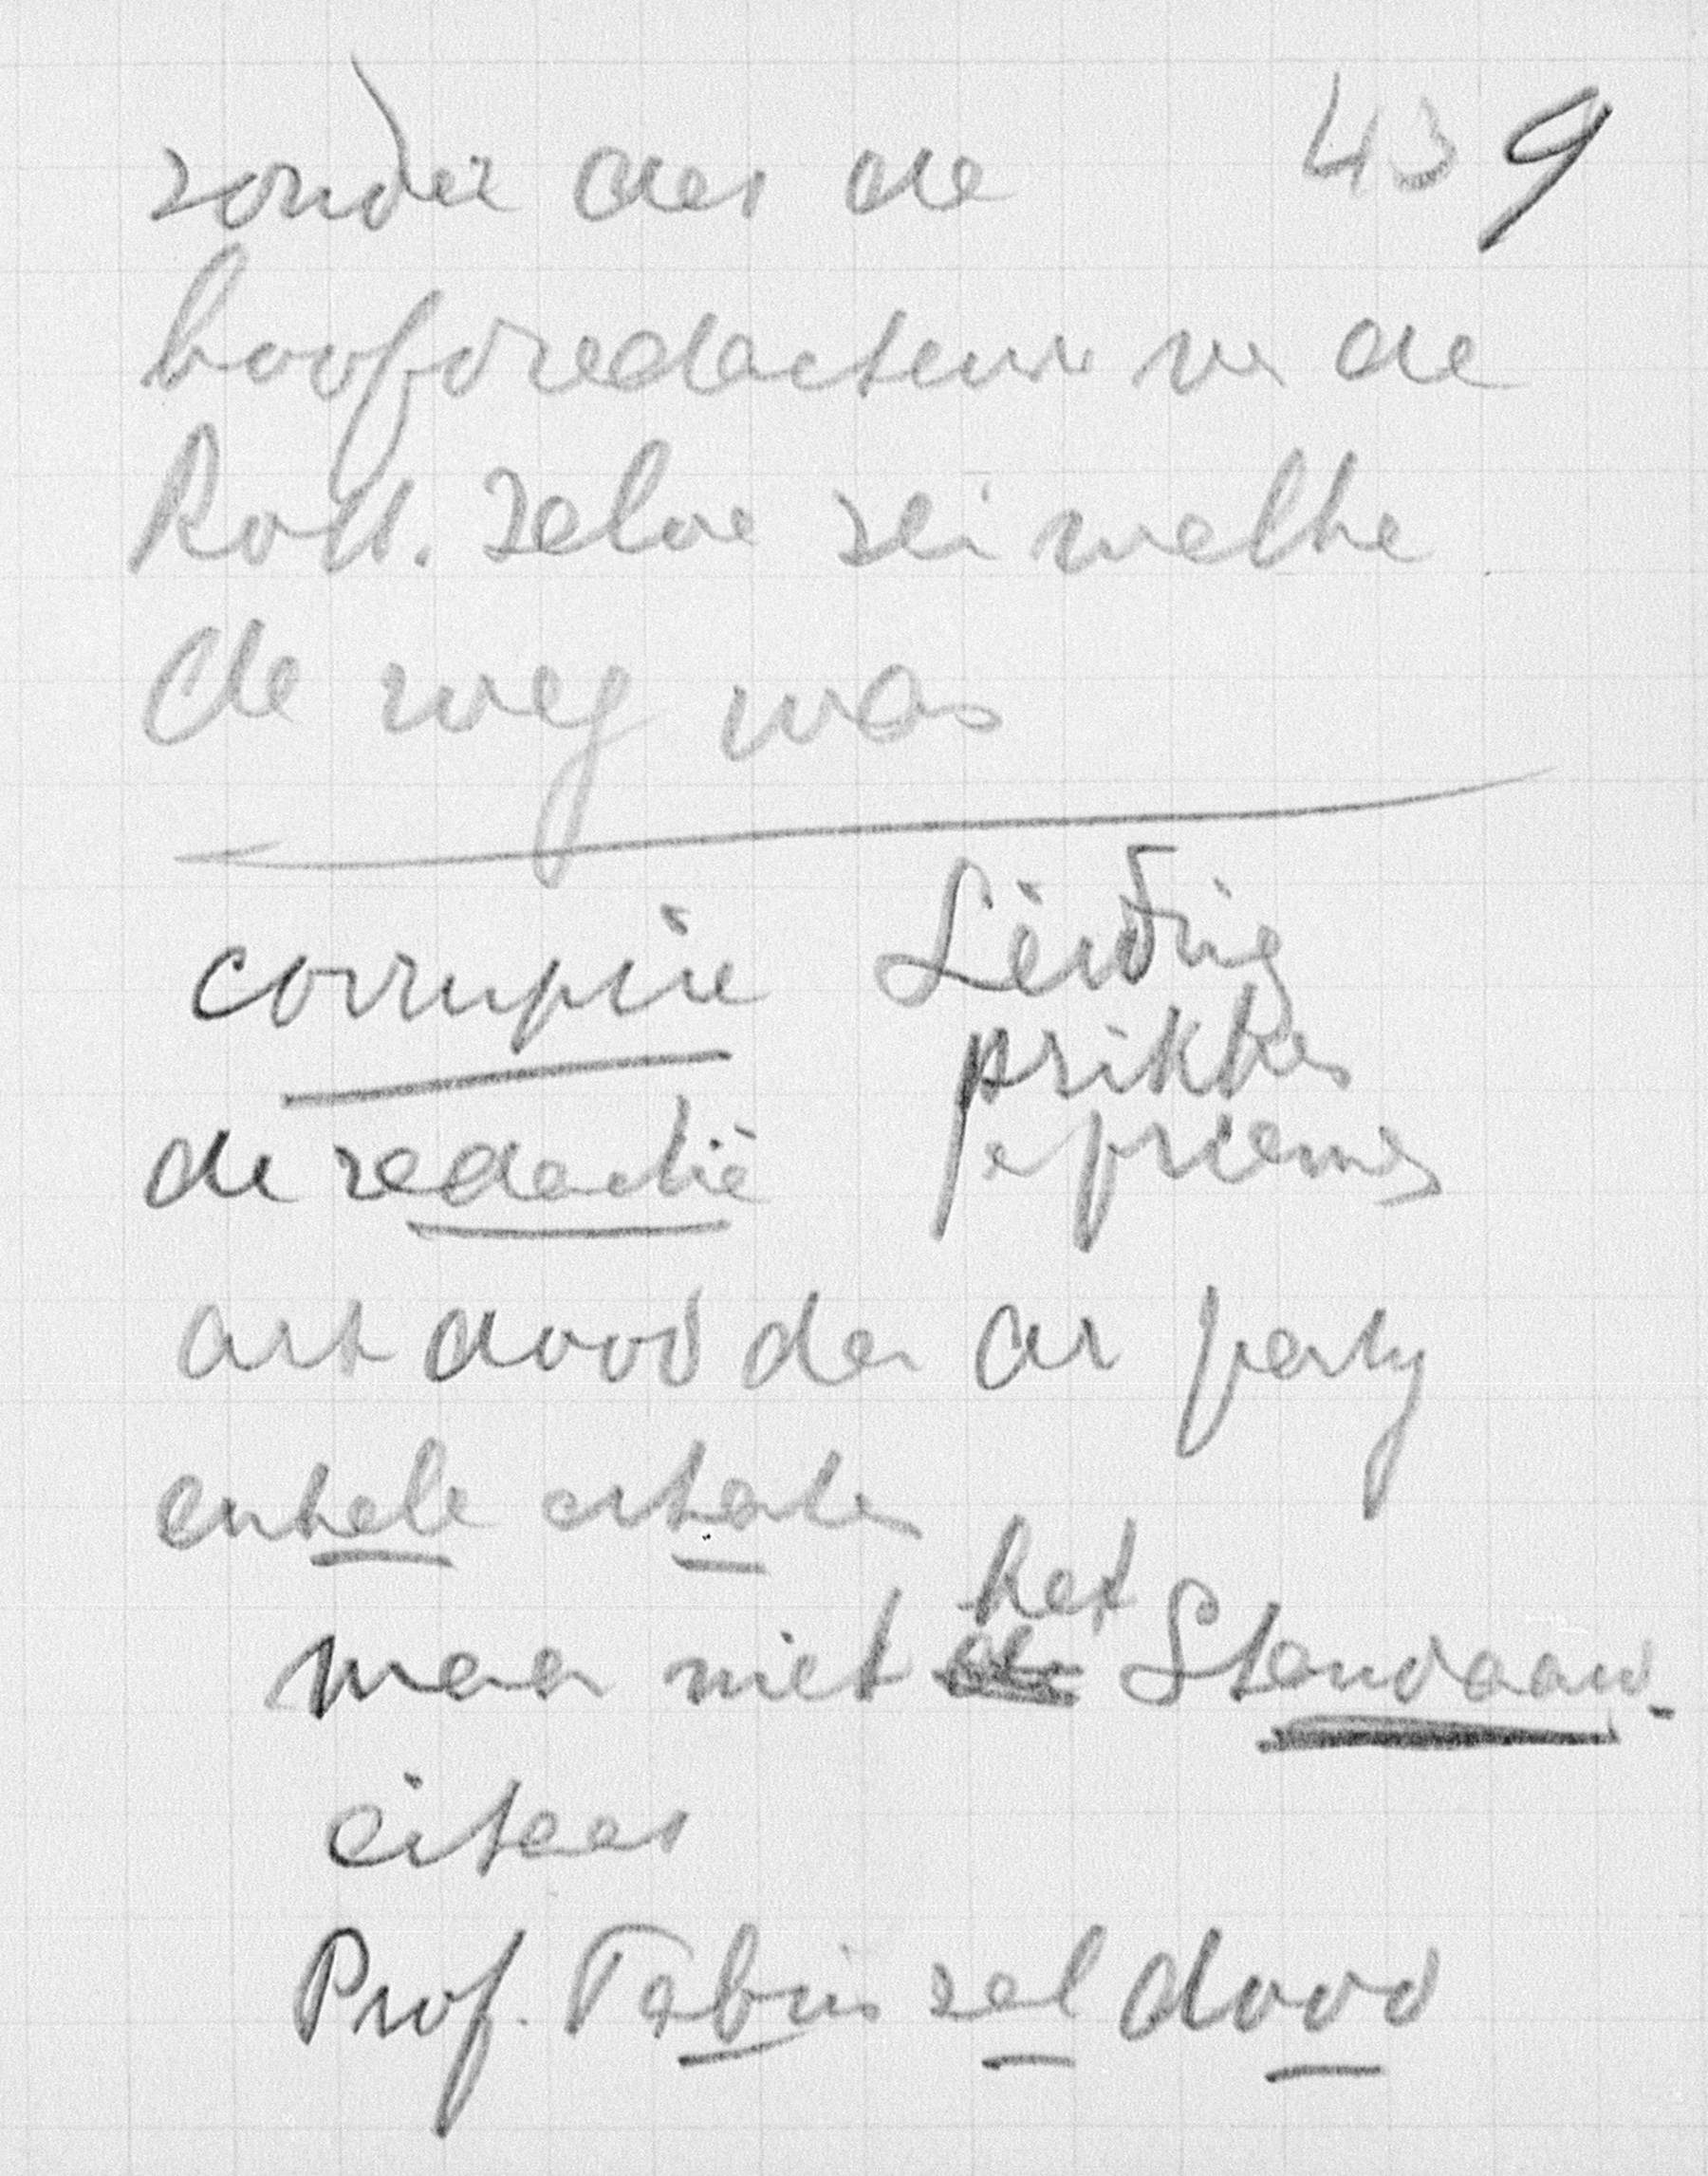 zonder dat de 43 9
hoofdredacteur v. de
Rott. zelve zei welke
de weg was
corruptie Leiding
prikkes
de redactie
art dood der ar party
enkele citaten
maar niet het Standaard
citeer
Prof. Fabius zal dood